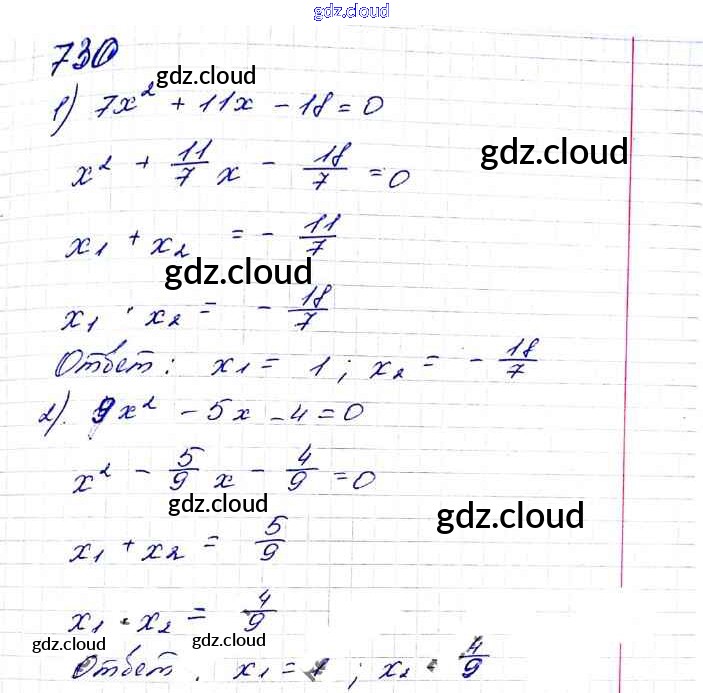 gdz.cloud
730
gdz.cloud
1) 7x² + 11x - 18 = 0
gdz.cloud
x² + 11/7 x - 18/7 = 0
x₁ + x₂ = - 11/7
gdz.cloud
x₁ · x₂ = - 18/7
Ответ: x₁ = 1; x₂ = - 18/7
2). 9x² - 5x - 4 = 0
x² - 5/9 x - 4/9 = 0
gdz.cloud
gdz.cloud
x₁ + x₂ = 5/9
x₁ · x₂ = 4/9
gdz.cloud
gdz.cloud
Ответ. x₁ = 1; x₂ 4/9